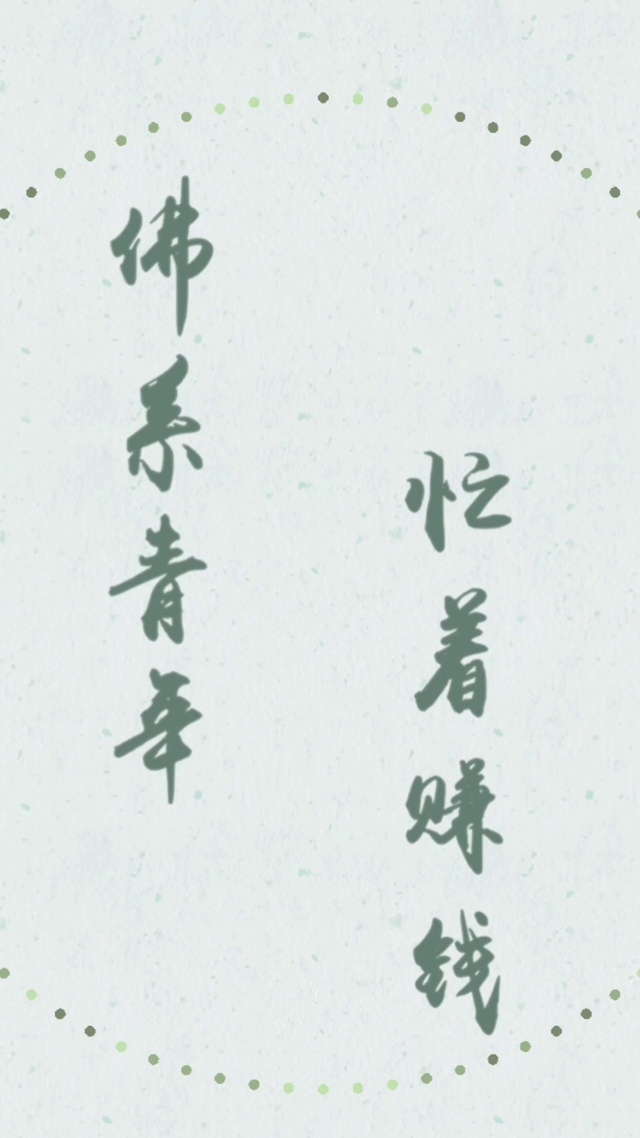 佛系青年
忙着赚钱